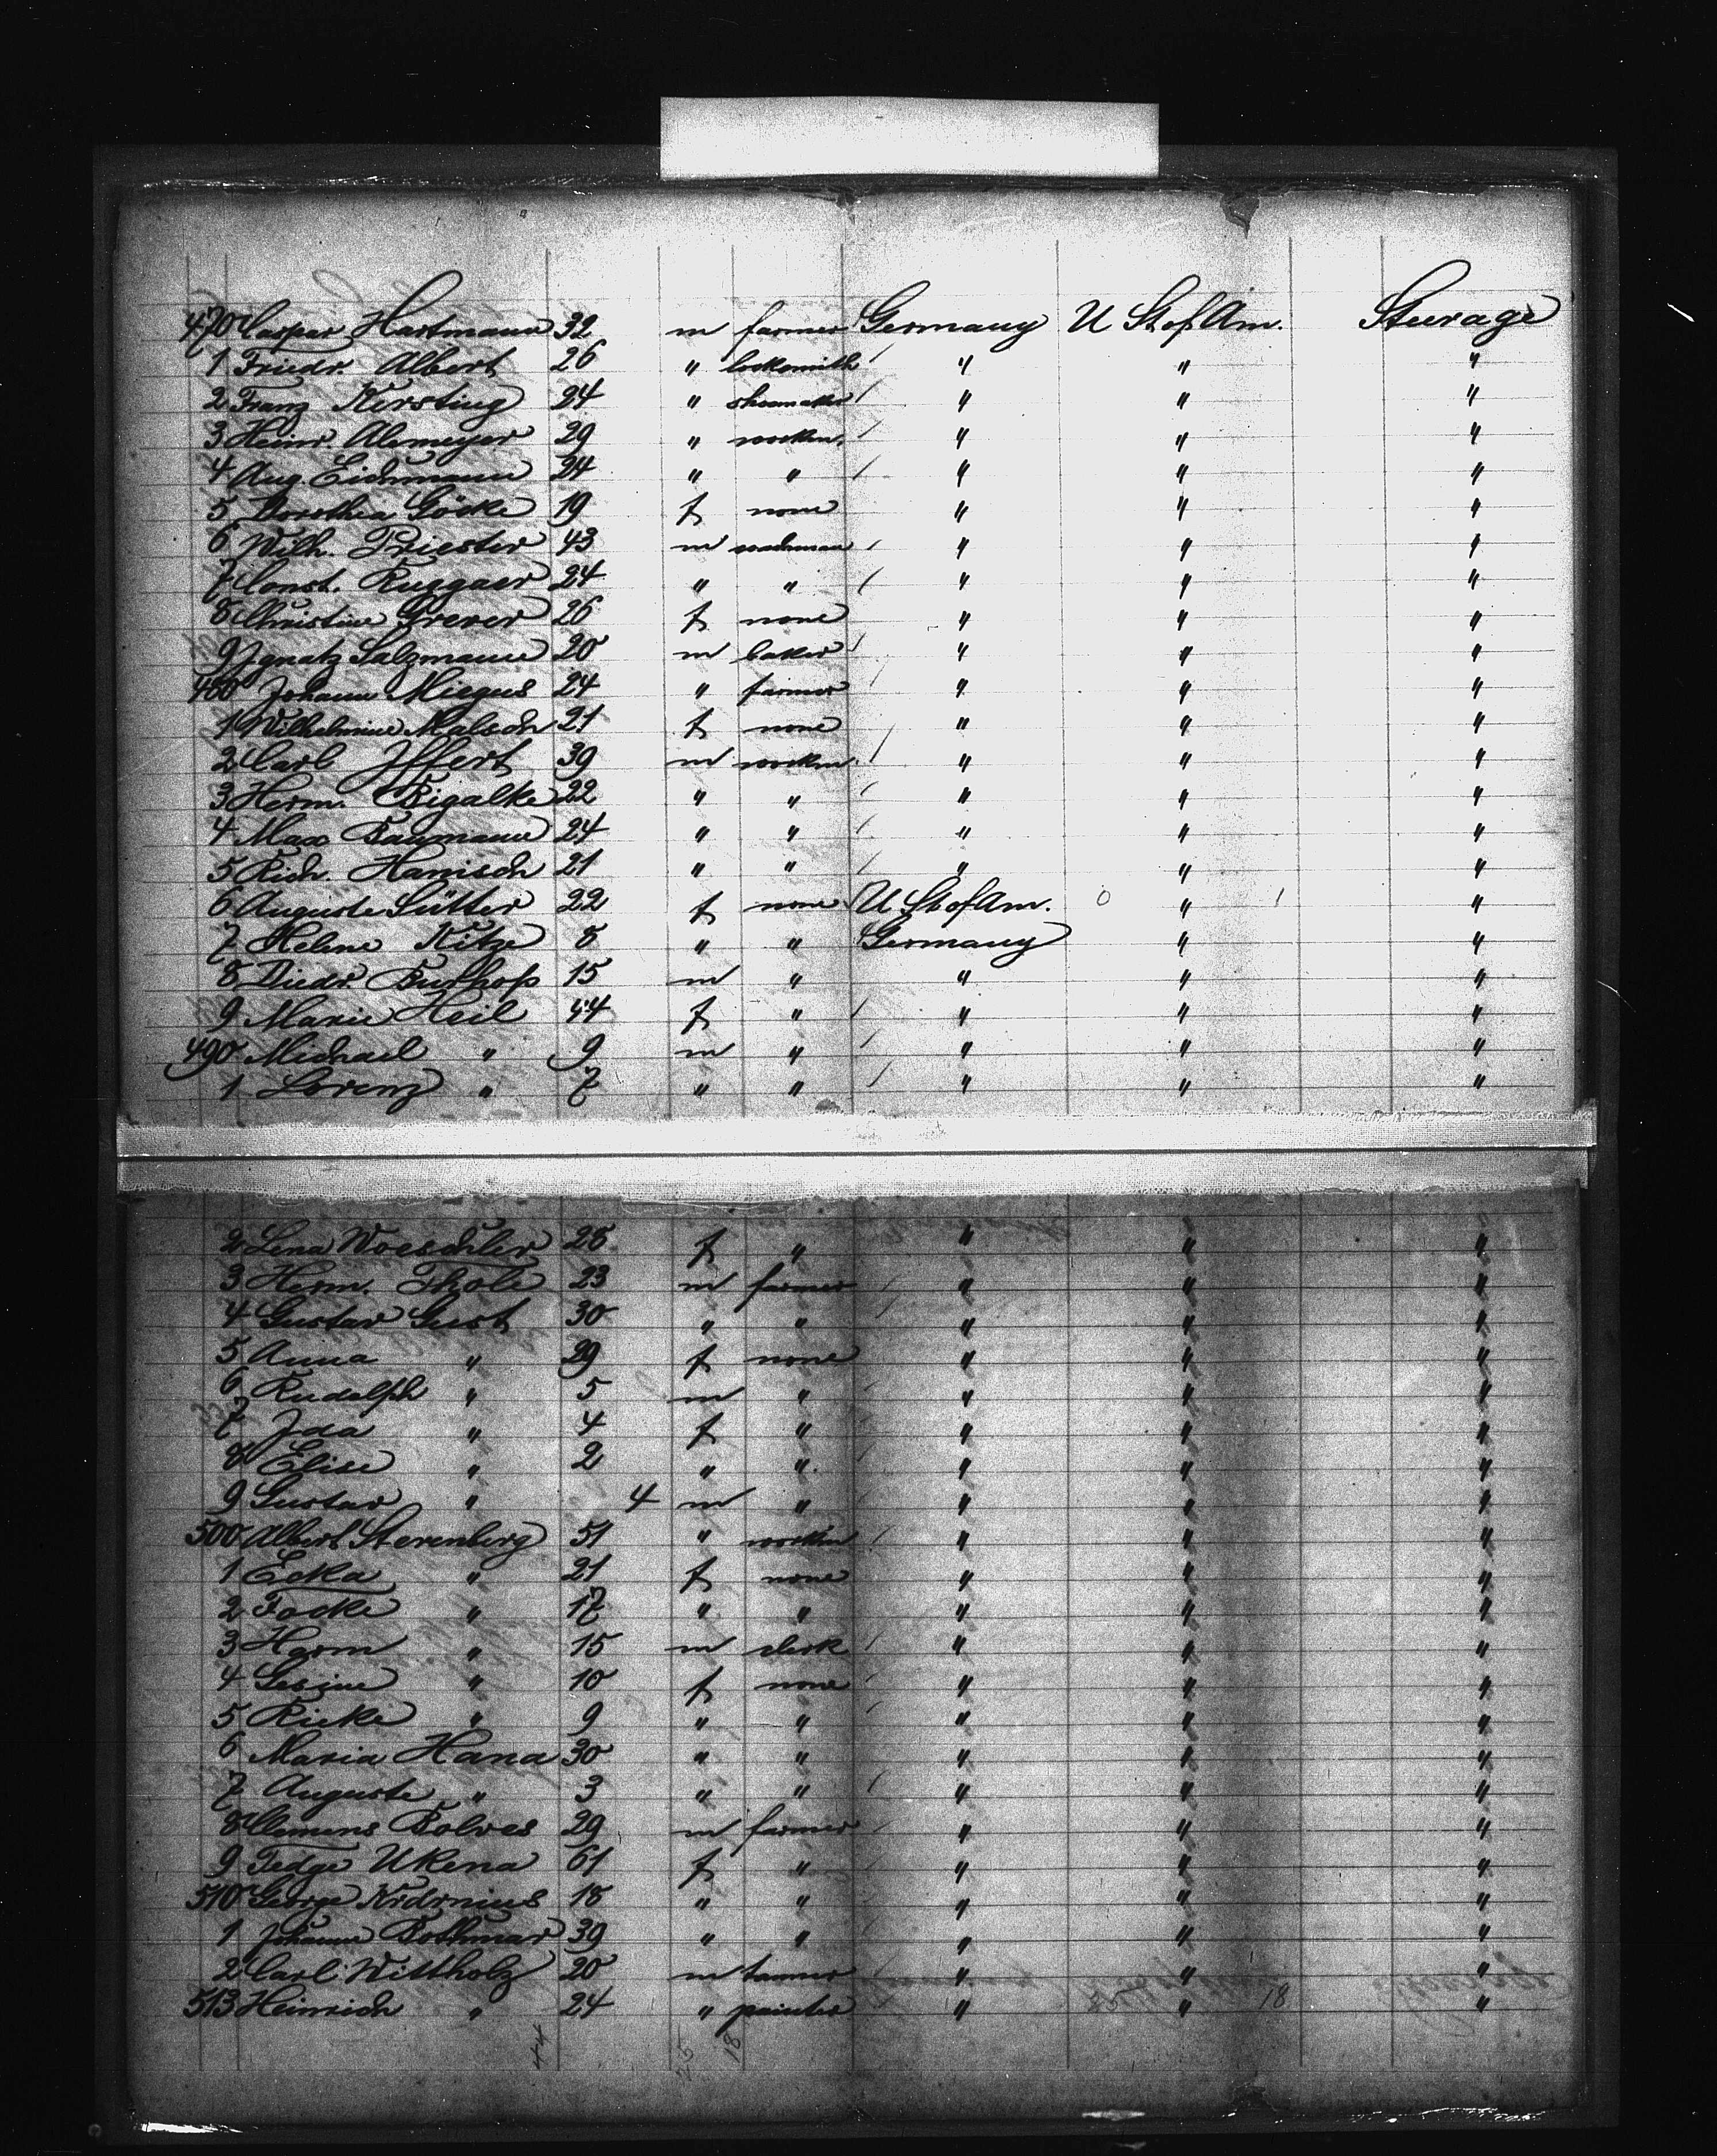 470 Caspar Hartmann 32 m farmer Germany U St of Am. Steerage
1 Friedr. Albert 26 " locksmith " " "
2 Franz Kersting 24 " shoemaker " " "
3 Heinr. Alemeyer 29 " workm. " " "
4 Aug. Eichmann 24 " " " " "
5 Dorothea Göcke 19 f none " " "
6 Wilh. Priester 43 m workman " " "
7 Const. Ruggaer 24 " " " " "
8 Christine Grever 26 f none " " "
9 Ignatz Salzmann 20 m baker " " "
480 Johann Miegus 24 " farmer " " "
1 Wilhelmine Malsch 21 f none " " "
2 Carl Iffert 39 m workm. " " "
3 Herm. Bigalke 22 " " " " "
4 Max Baumann 24 " " " " "
5 Rich. Hanisch 21 " " " " "
6 Auguste Sütter 22 f none U St of Am. 0 " 1 "
7 Helene Kitze 8 " " Germany " "
8 Diedr. Buschoff 15 m " " " "
9 Marie Heil 44 f " " " "
490 Michael " 9 m " " " "
1 Lorenz " 7 " " " " "
2 Lena Woeschler 28 f " " " "
3 Herm. Thole 23 m farmer " " "
4 Gustav Gust 30 " " " " "
5 Anna " 29 f none " " "
6 Rudolph " 5 m " " " "
7 Ida " 4 f " " " "
8 Elise " 2 " " " " "
9 Gustav " 4 m " " " "
500 Albert Sterenberg 51 " workm " " "
1 Ecka " 21 f none " " "
2 Focke " 17 " " " " "
3 Harm " 15 m clerk " " "
4 Gesine " 10 f none " " "
5 Ricke " 9 " " " " "
6 Maria Hana 30 " " " " "
7 Auguste " 3 " " " " "
8 Clemens Bolves 29 m farmer " " "
9 Fedge Ukena 61 f " " " "
510 George 18 " " " " "
1 Johanne Bothmar 39 " " " " "
2 Carl Wittholz 20 m tanner " " "
513 Heinrich " 24 " painter " " 18 "
44 25 18